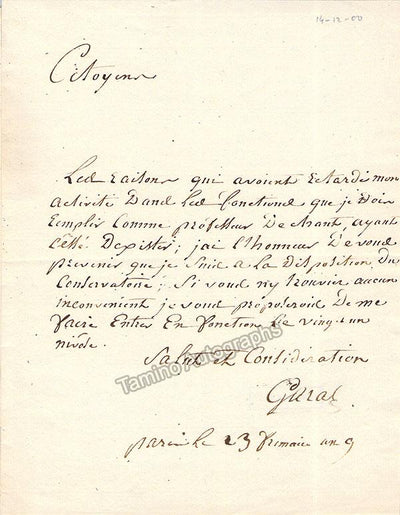 14-12-00
Citoyens
Les raisons qui avoient retardé mon
activité dans les fonctions que je dois
remplir comme professeur de chant, ayant
cessé d'exister; jai l'honneur de vous
prevenir que je suis a la disposition du
Conservatoire; si vous ny trouvier aucun
inconvenient je vous proposerois de me
faire entrer en fonction le vingt un
nivose.
Salut et Considération
Garat
Tamino Autographs
paris le 23 frimaire an 9